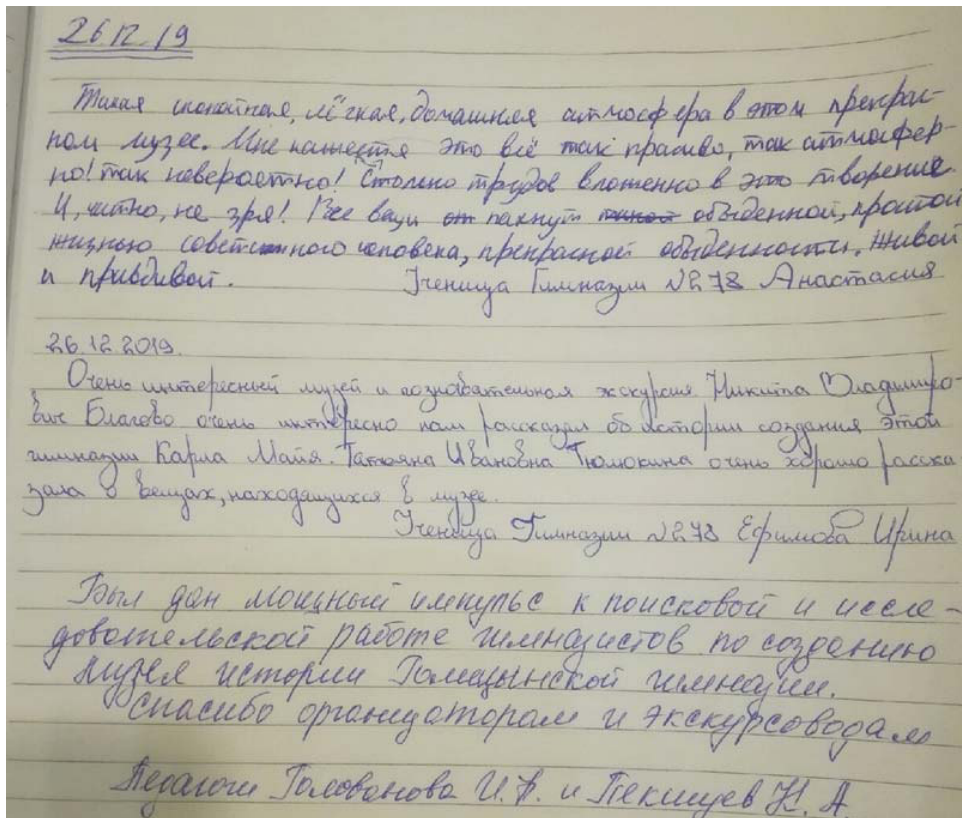 26.12.19
Такая спокойная, лёгкая, домашняя атмосфера в этом прекрас-
ном музее. Мне кажется это всё так красиво, так атмосфер-
но! так невероятно! Столько трудов вложенно в это творение.
И, читно, не зря! Все вещи пахнут обыденной, простой
жизнью советского человека, прекрасной обыденности, живой
и правдивой. Ученица Гимназии №278 Анастасия
26.12.2019.
Очень интересный музей и познавательная экскурсия. Никита Владимиро-
вич Благово очень интересно нам рассказал об истории создания этой
гимназии Карла Майя. Татьяна Ивановна Тюмокина очень хорошо расска-
зала о вещах, находящихся в музее.
Ученица Гимназии №278 Ефимова Ирина
Был дан мощный импульс к поисковой и иссле-
довательской работе гимназистов по созданию
музея истории гимназии.
Спасибо организаторам и экскурсоводам
Педагоги Голованова И.В. и Пекишев К.А.